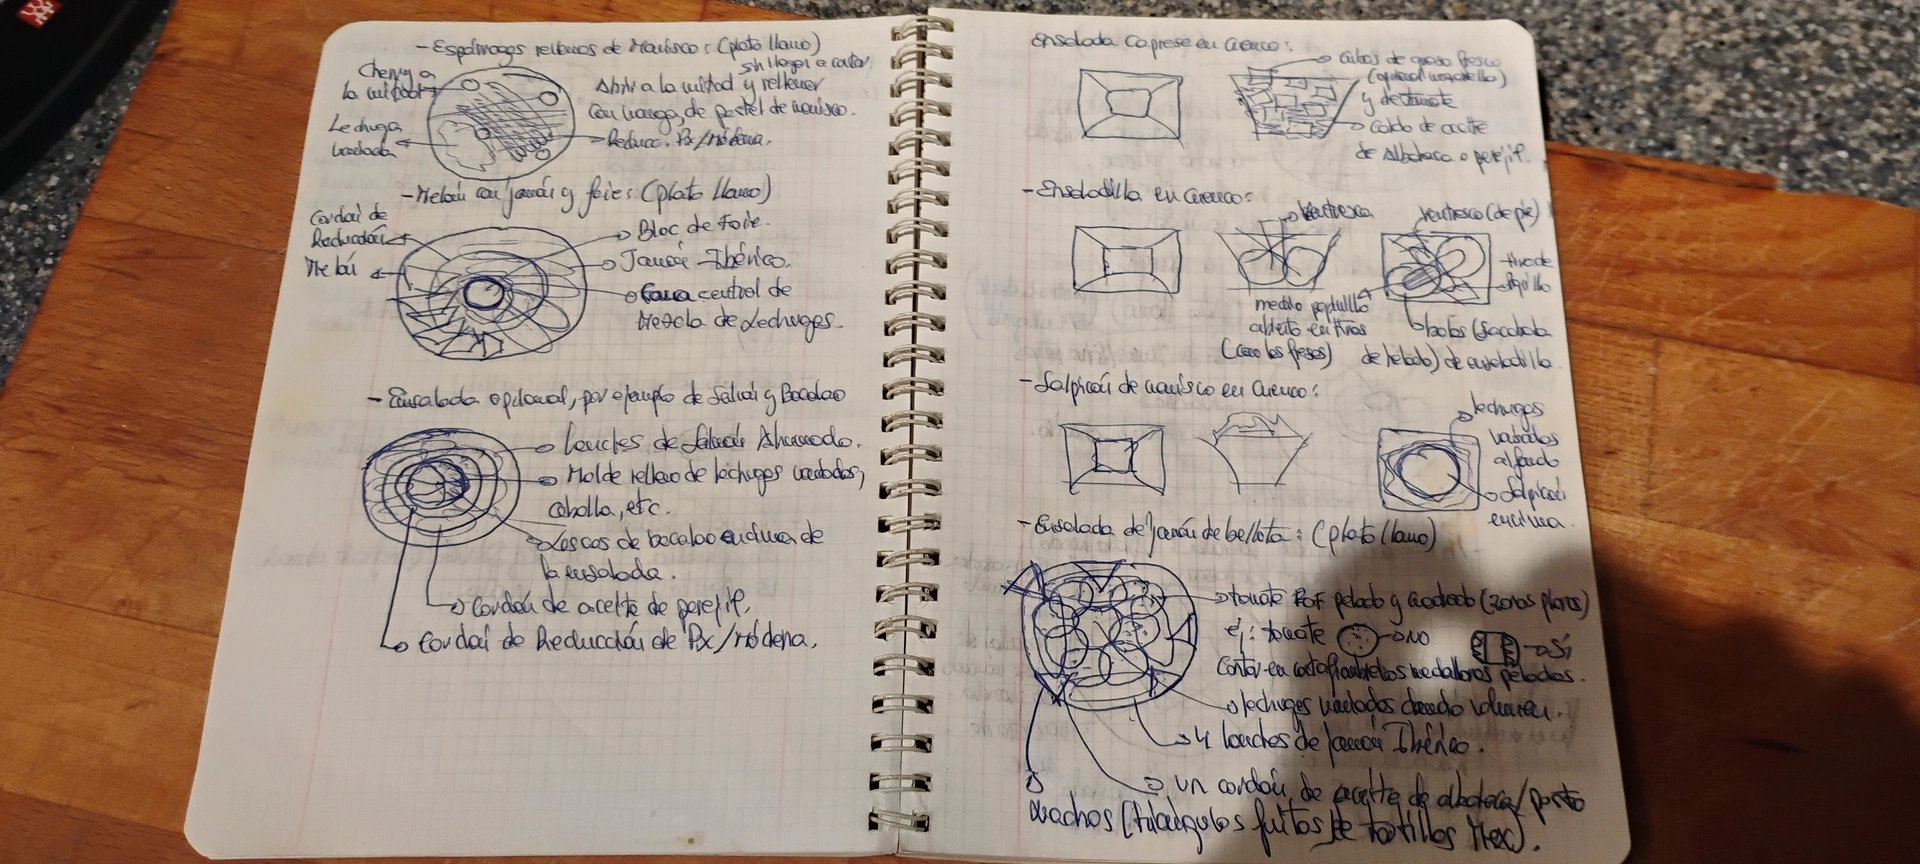 - Espárragos rellenos de Marisco: (plato llano)
sin llegar a cortar
Cherry a
la mitad
Abrir a la mitad y rellenar
con manga, de pastel de marisco.
Lechuga
variada
Reducc. Px/módena.
- Melón con jamón y foie: (plato llano)
Cordón de
Reducción
Melón
Bloc de Foie.
Jamón Ibérico.
Cama central de
Mezcla de Lechugas.
- Ensalada opcional, por ejemplo de Salmón y Bacalao
Lonches de Salmón Ahumado.
Molde relleno de lechugas variadas,
cebolla, etc.
Lascas de bacalao encima de
la ensalada.
Cordón de aceite de perejil.
Cordón de Reducción de Px/módena.
Ensalada Caprese en cuenco:
Cubos de queso fresco
(opcional mozarella)
y de tomate
Caldo de aceite
de Albahaca o perejil.
- Ensaladilla en cuenco:
Ventresca
Ventresca (de pie)
tira de
medio piquillo
abierto en tiras
(como las fresas)
bolas (sacabola
de helado) de ensaladilla.
- Salpicón de marisco en cuenco:
lechugas
variadas
al fondo
Salpicón
encima.
- Ensalada de jamón de bellota: (plato llano)
tomate RAF pelado y cuadrado (zonas planas)
ej: tomate → NO → Sí
Cortar en cortafiambres los medallones pelados.
lechugas variadas dando volumen.
4 lonches de Jamón Ibérico.
un cordón de aceite de albahaca/pesto
Nachos (triángulos fritos de tortillas Mex).